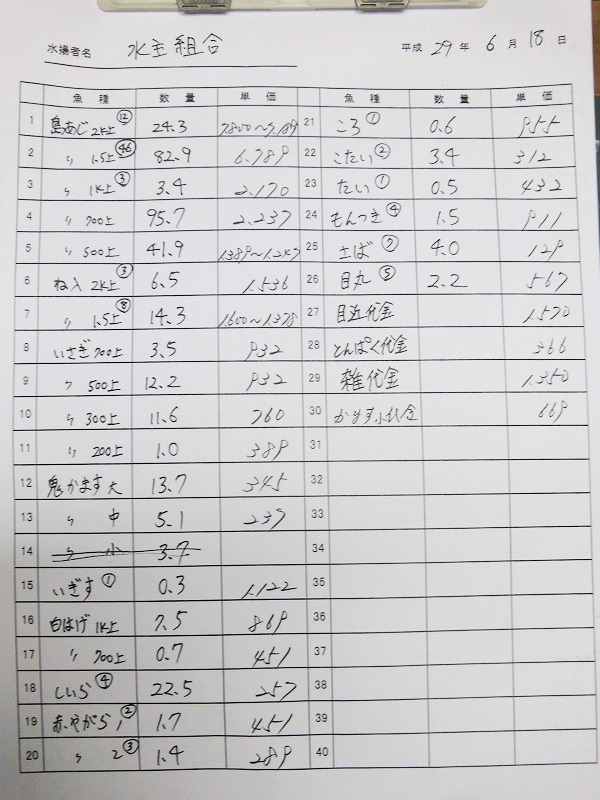 水揚者名 水主組合 平成 29 年 6 月 18 日
魚種 数量 単価 魚種 数量 単価
1 島あじ 2K上 ⑫ 24.3 7.800〜7.189 21 ころ ① 0.6 955
2 〃 1.5上 ㊻ 82.9 6.789 22 こたい ② 3.4 312
3 〃 1K上 ③ 3.4 2.170 23 たい ① 0.5 432
4 〃 700上 95.7 2.237 24 もんつき ④ 1.5 911
5 〃 500上 41.9 1389〜1.247 25 さば ⑦ 4.0 129
6 ね入 2K上 ③ 6.5 1.536 26 目丸 ⑤ 2.2 567
7 〃 1.5上 ⑧ 14.3 1.600〜1.378 27 目近代金 1.570
8 いさぎ 700上 3.5 932 28 とんぱく代金 366
9 〃 500上 12.2 932 29 雑代金 1.350
10 〃 300上 11.6 760 30 かます小代金 669
11 〃 200上 1.0 389 31
12 鬼かます 大 13.7 345 32
13 〃 中 5.1 237 33
14 〃 小 3.7 34
15 いぎす ① 0.3 1.122 35
16 白はげ 1K上 7.5 869 36
17 〃 700上 0.7 451 37
18 しいら ④ 22.5 257 38
19 赤やがら 1 ② 1.7 451 39
20 〃 2 ③ 1.4 289 40